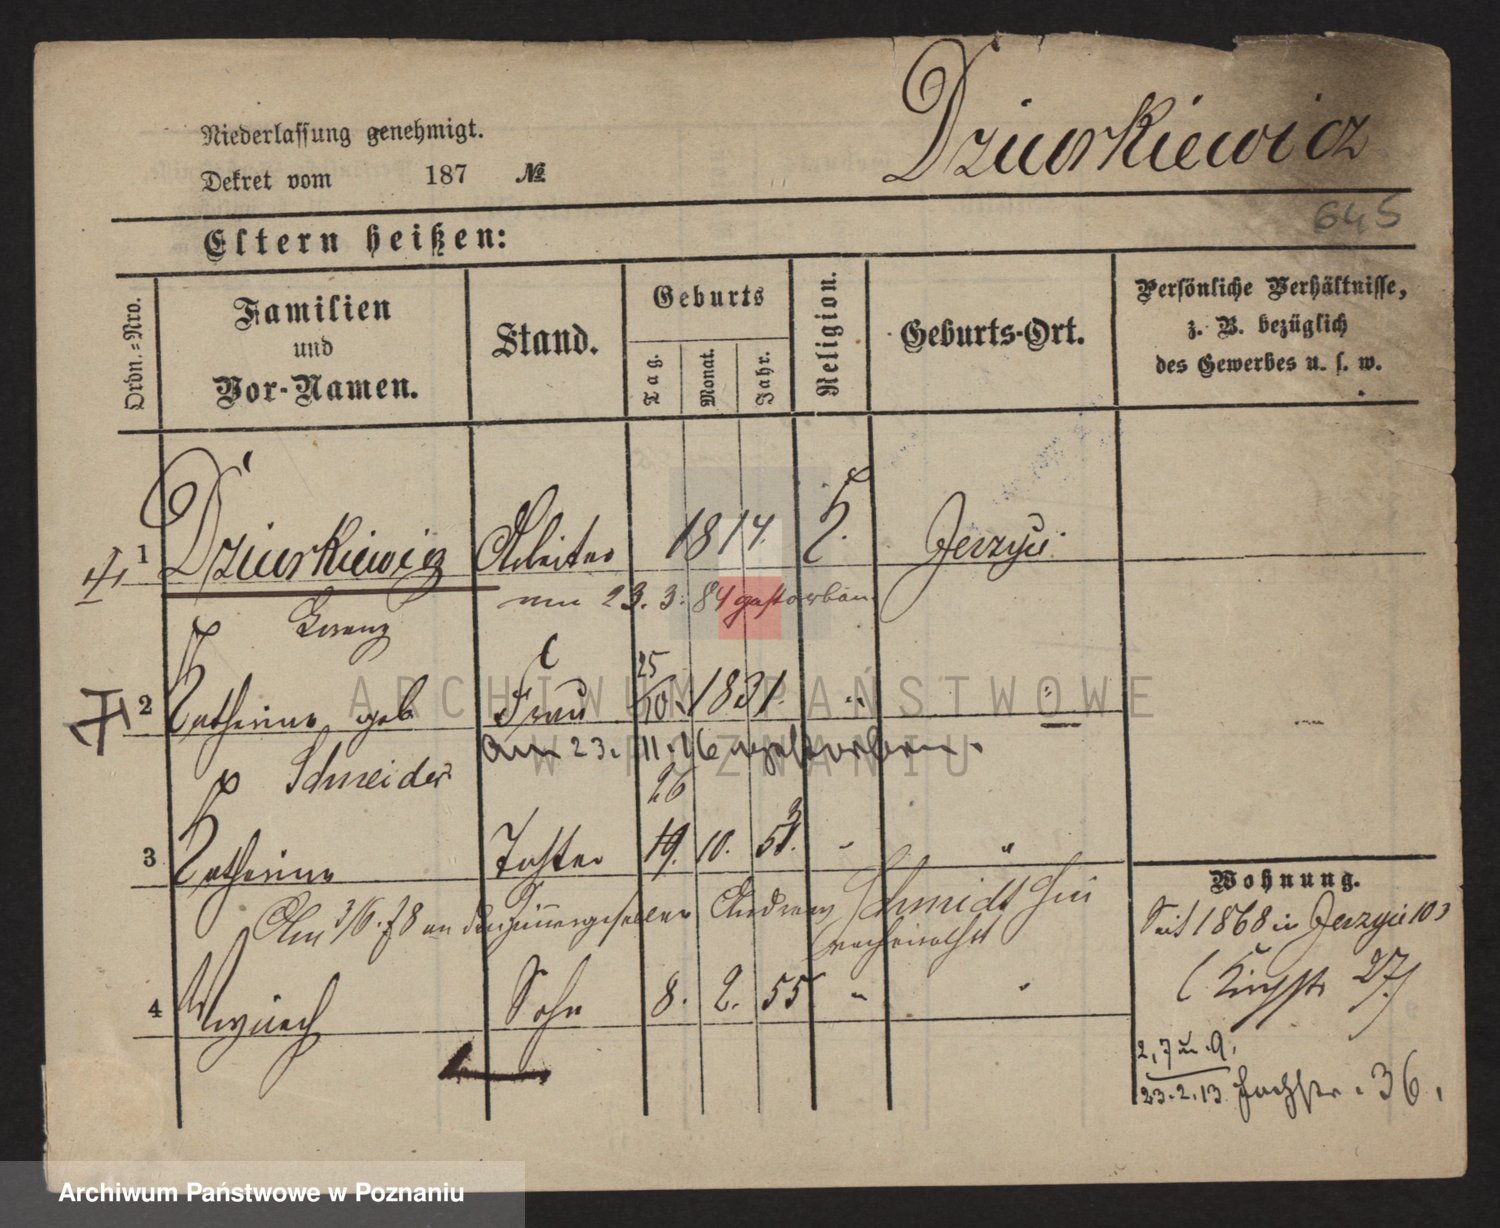 Dziurkiewicz
Niederlassung genehmigt.
Dekret vom 187 №
645
Eltern heißen:
Ordn.=Nro.
Familien
und
Vor-Namen.
Stand.
Geburts
Tag.
Monat.
Jahr.
Religion.
Geburts-Ort.
Persönliche Verhältnisse,
z. B. bezüglich
des Gewerbes u. s. w.
1 Dziurkiewicz Arbeiter 1814. K. Jerzyce
am 23. 3. 84 gestorben
Lorenz
2 Katharina geb Frau 25/10. 1831. " "
am 23. 11. 16 gestorben.
Schneider
26
3 Katharina Tochter 19. 10. 53. " "
Am 3/6. 78 an den Andreas Schmidt hier
verheirathet
4 Woyciech Sohn 8. 2. 55 " "
Wohnung.
Seit 1868 in Jerzyce 103
27)
2, 7 u. 9.
23.2.13. 36.
ARCHIWUM PAŃSTWOWE
W POZNANIU
Archiwum Państwowe w Poznaniu